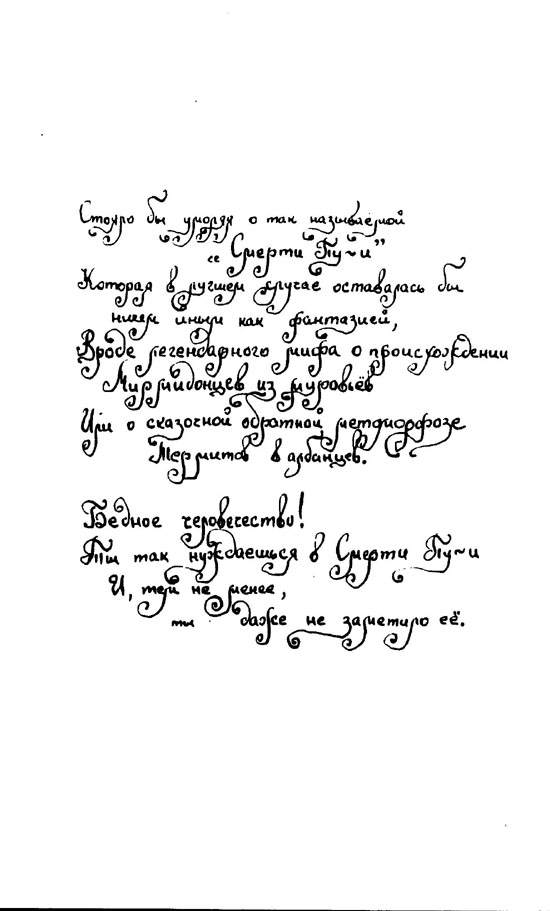 Стоило бы умолчя о так называемой
„Смерти Пу~и”
Которая в лучшем случае оставалась бы
ничем иным как фантазией,
Вроде легендарного мифа о происхождении
Мирмидонцев из муровьёв
Или о сказочной обратной метаморфозе
Термитов в албанцев.
Бедное человечество!
Ты так нуждаешься в Смерти Пу~и
И, тем не менее,
ты даже не заметило её.